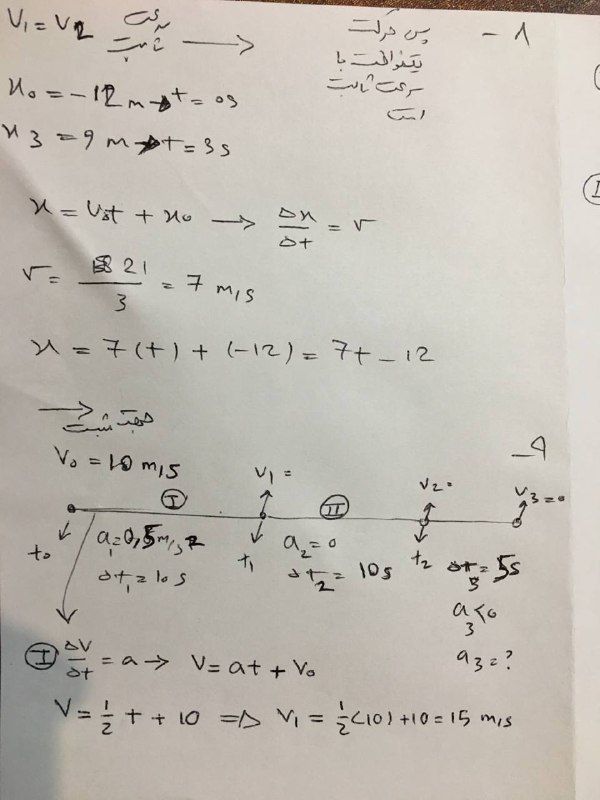 V₁ = V₂ سرعت ثابت → پس حرکت یکنواخت با سرعت ثابت است ۸-
x₀ = -12 m → t = 0s
x 3 = 9 m → t = 3s
x = V₀t + x₀ → Δx/Δt = v
v = 21/3 = 7 m/s
x = 7(t) + (-12) = 7t - 12
→ جهت مثبت
V₀ = 10 m/s ۹-
I V₁ = II V₂ = V₃ = 0
t₀ a₁ = 0,5 m/s² t₁ a₂ = 0 t₂ Δt₃ = 5s
Δt₁ = 10s Δt₂ = 10s
a₃ < 0
a₃ = ?
I ΔV/Δt = a → V = at + V₀
V = 1/2 t + 10 ⇒ V₁ = 1/2 (10) + 10 = 15 m/s